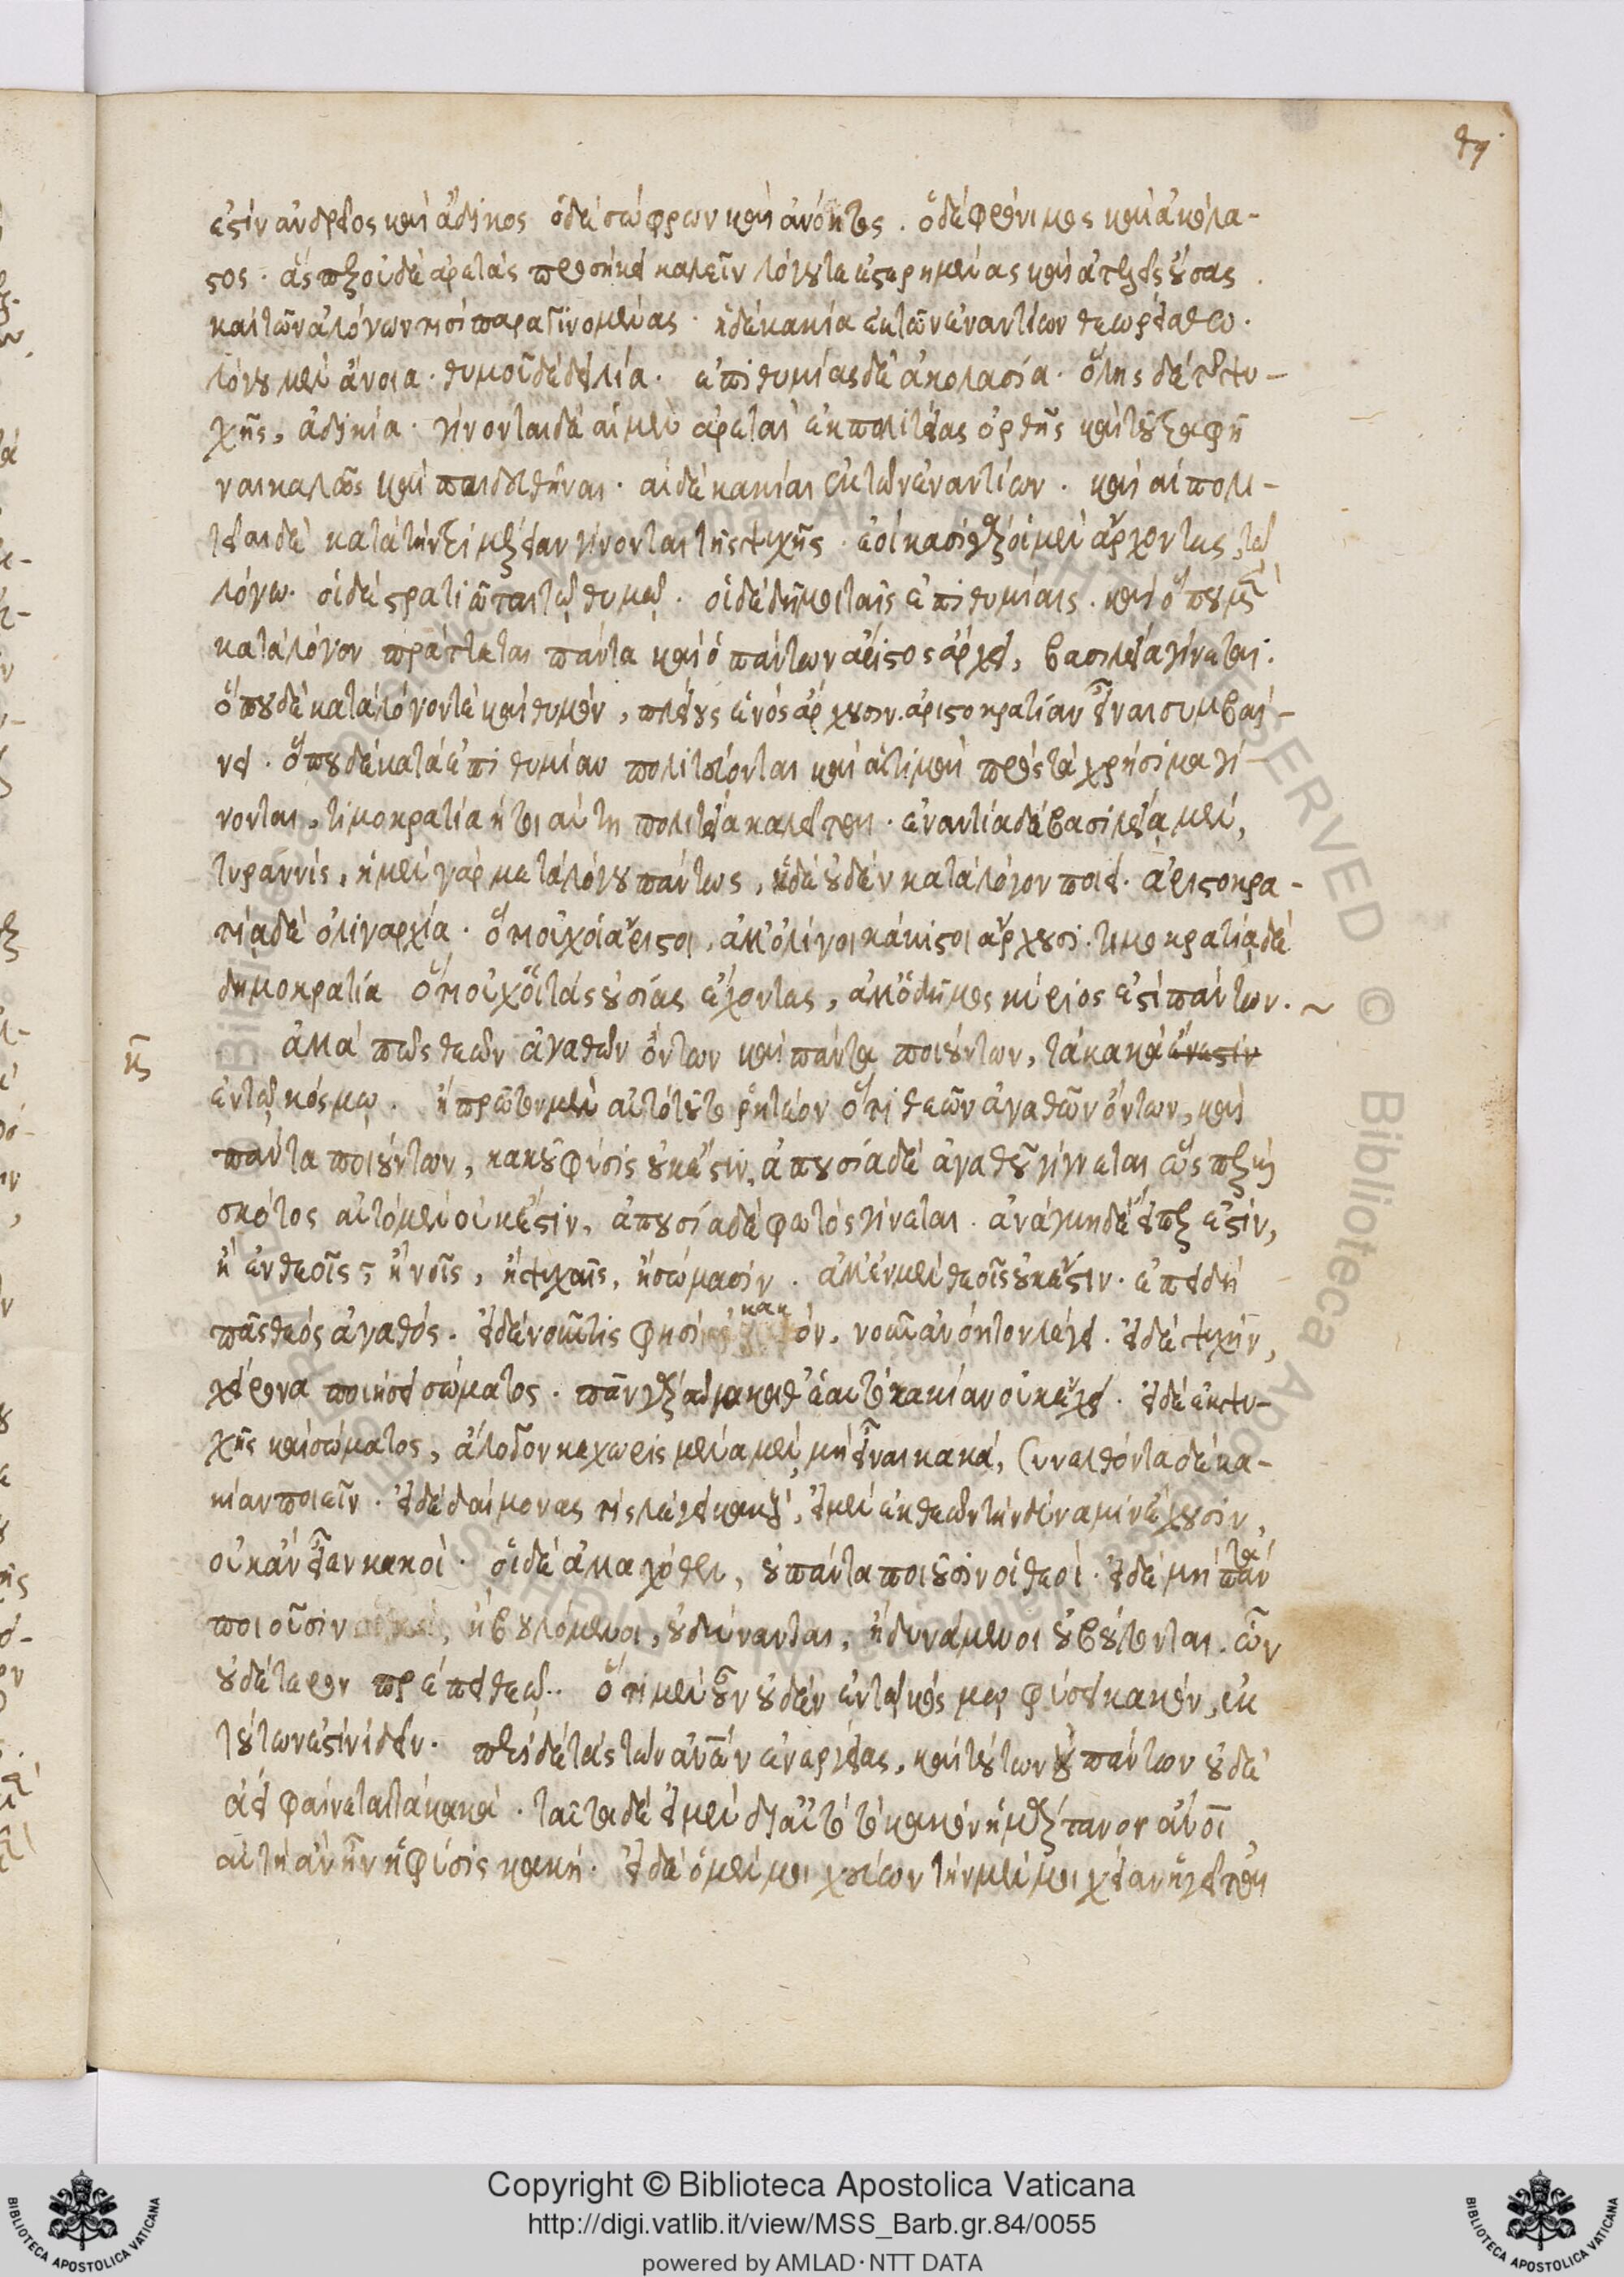 ἐστὶν ἀνδρεῖος καὶ ἄδικος ὁ δὲ σώφρων καὶ ἀνόητος. ὁ δὲ φρόνιμος καὶ ἀκόλα-
στος. ἅσπερ οὐδὲ ἀρετὰς προσήκει καλεῖν λόγου τε ἐστερημένας καὶ ἀτελεῖς οὔσας
καὶ τῶν ἀλόγων τισὶ παραγινομένας. ἡ δὲ κακία ἐκ τῶν ἐναντίων θεωρείσθω.
λόγου μὲν ἄνοια. θυμοῦ δὲ δειλία. ἐπιθυμίας δὲ ἀκολασία. ὅλης δὲ τῆς ψυ-
χῆς, ἀδικία. γίνονται δὲ αἱ μὲν ἀρεταὶ ἐκ πολιτείας ὀρθῆς καὶ τοῦ τραφῆ
ναι καλῶς καὶ παιδευθῆναι. αἱ δὲ κακίαι ἐκ τῶν ἐναντίων. καὶ αἱ πολι-
τεῖαι δὲ κατὰ τὴν τριμέρειαν γίνονται τῆς ψυχῆς. ἐοίκασι γὰρ οἱ μὲν ἄρχοντες, τῷ
λόγω. οἱ δὲ στρατιῶται τῷ θυμῷ. οἱ δὲ δῆμοι ταῖς ἐπιθυμίαις. καὶ ὅπου μὲν
κατὰ λόγον πράττεται πάντα καὶ ὁ πάντων ἄριστος ἄρχει, βασιλεία γίνεται.
ὅπου δὲ κατὰ λόγον τὲ καὶ θυμὸν, πλείους ἑνὸς ἄρχουσιν. ἀριστοκρατίαν εἶναι συμβαί-
νει. ὅπου δὲ κατὰ ἐπιθυμίαν πολιτεύονται καὶ αἱ τιμαὶ πρὸς τὰ χρήσιμα γί-
νονται, τιμοκρατία ἡ τοιαύτη πολιτεία καλεῖται. ἐναντία δὲ βασιλείᾳ μὲν,
τυραννίς, ἡ μὲν γὰρ μετὰ λόγου πάντως, ἡ δὲ οὐδὲν κατὰ λόγον ποιεῖ. ἀριστοκρα-
τίᾳ δὲ ὀλιγαρχία. ὅτι οὐχ οἱ ἄριστοι, ἀλλ' ὀλίγοι κάκιστοι ἄρχουσι. τιμοκρατίᾳ δὲ
δημοκρατία ὅτι οὐχ οἱ τὰς οὐσίας ἔχοντες, ἀλλ' ὁ δῆμος κύριος ἐστὶ πάντων. ~
κ ἀλλὰ πῶς θεῶν ἀγαθῶν ὄντων καὶ πάντα ποιούντων, τὰ κακὰ ἔνεστιν
ἐν τῷ κόσμῳ. ἢ πρῶτον μὲν αὐτὸ τοῦτο ῥητέον ὅτι θεῶν ἀγαθῶν ὄντων, καὶ
πάντα ποιούντων, κακοῦ φύσις οὐκ ἔστιν, ἀπουσίᾳ δὲ ἀγαθοῦ γίνεται ὥσπερ καὶ
σκότος αὐτὸ μὲν οὐκ ἔστιν, ἀπουσίᾳ δὲ φωτὸς γίνεται. ἀνάγκη δὲ εἴπερ ἐστὶν,
ἢ ἐν θεοῖς, ἢ νοῖς, ἢ ψυχαῖς, ἢ σώμασιν. ἀλλ' ἐν μὲν θεοῖς οὐκ ἔστιν. ἐπειδὴ
πᾶς θεὸς ἀγαθός. εἰ δὲ νοῦν τίς φησὶ κακόν, νοῦν ἀνόητον λέγει. εἰ δὲ ψυχὴν,
χείρονα ποιήσει σώματος. πᾶν γὰρ σῶμα καθ' ἑαυτὸ κακίαν οὐκ ἔχει. εἰ δὲ ἐκ ψυ-
χῆς καὶ σώματος, ἄλογον κεχωρισμένα μὲν μὴ εἶναι κακά, συνελθόντα δὲ κα-
κίαν ποιεῖν. εἰ δὲ δαίμονας τις λέγει κακοὺς, εἰ μὲν ἐκ θεῶν τὴν δύναμιν ἔχουσιν,
οὐκ ἂν εἶεν κακοί. εἰ δὲ ἀλλαχόθεν, οὐ πάντα ποιοῦσιν οἱ θεοί. εἰ δὲ μὴ πάντα
ποιοῦσιν, ἢ βουλόμενοι, οὐ δύνανται, ἢ δυνάμενοι οὐ βούλονται. ὧν
οὐδέτερον πρέπει θεῷ. ὅτι μὲν οὖν οὐδὲν ἐν τῷ κόσμῳ φύσει κακόν, ἐκ
τούτων ἐστὶν ἰδεῖν. περὶ δὲ τὰς τῶν ἀνων ἐνεργείας, καὶ τούτων οὐ πάντων οὐδὲ
ἀεὶ φαίνεται τὰ κακά. ταῦτα δὲ εἰ μὲν δι' αὐτὸ τὸ κακὸν ἡμάρτανον ἄνοι,
αὐτὴ ἂν ἦν ἡ φύσις κακή. εἰ δὲ ὁ μὲν μοιχεύων τὴν μὲν μοιχείαν ἡγεῖται